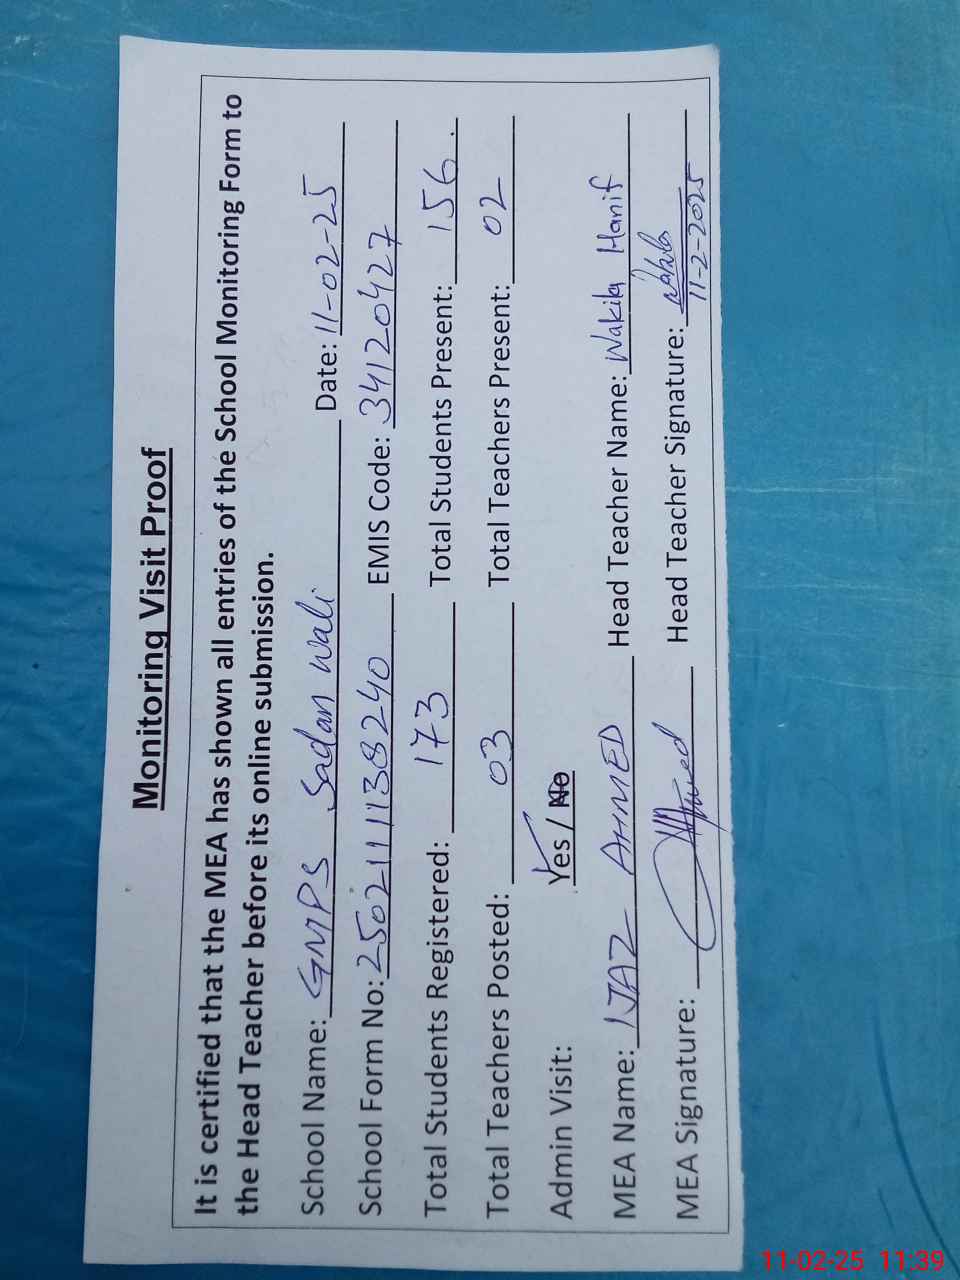 Monitoring Visit Proof
It is certified that the MEA has shown all entries of the School Monitoring Form to
the Head Teacher before its online submission.
School Name: GMPS Sadan Wali Date: 11-02-25
School Form No: 2502111138240 EMIS Code: 34120427
Total Students Registered: 173 Total Students Present: 156.
Total Teachers Posted: 03 Total Teachers Present: 02
Admin Visit: Yes / No
MEA Name: IJAZ AHMED Head Teacher Name: Wakila Hanif
MEA Signature: Head Teacher Signature:
11-2-2025
11-02-25 11:39